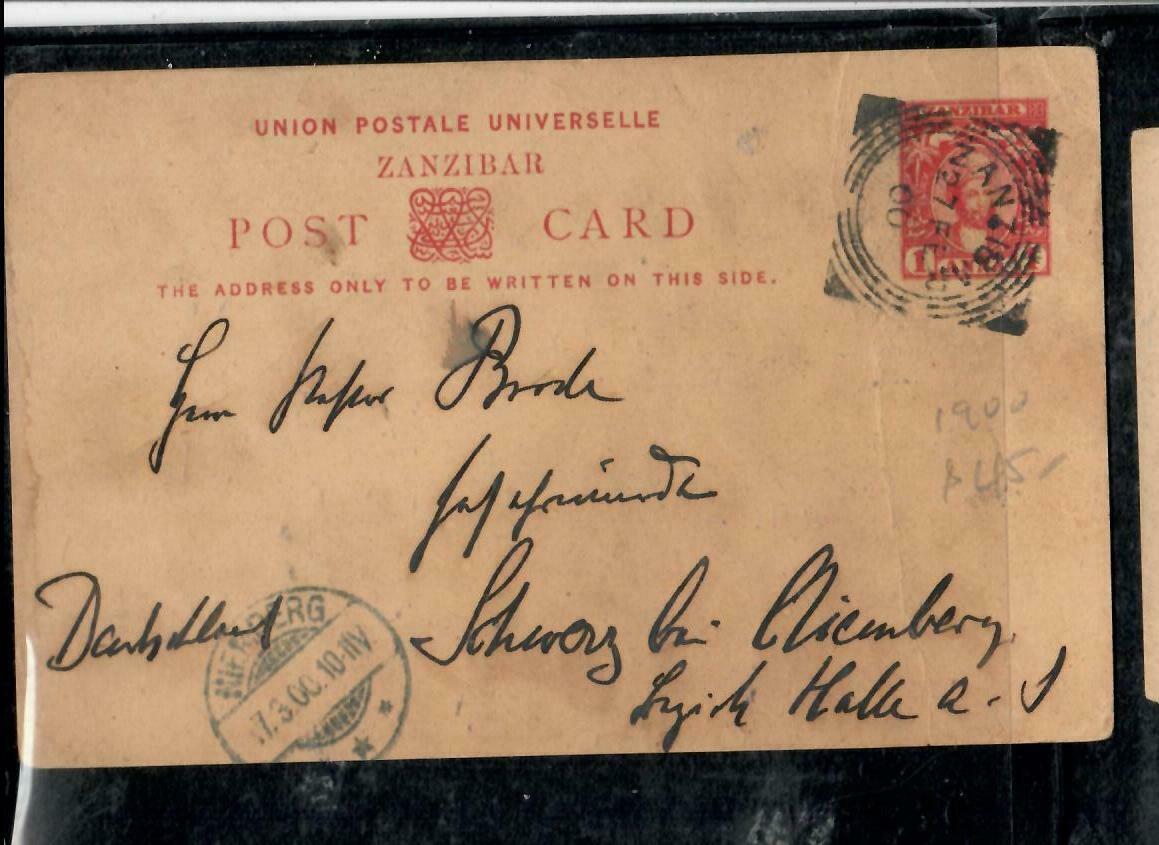 UNION POSTALE UNIVERSELLE
ZANZIBAR
POST CARD
THE ADDRESS ONLY TO BE WRITTEN ON THIS SIDE.
ZANZIBAR
1
ZANZIBAR
27 FE
00
Herrn Pastor Brode
1900
$45-
Deutschland
Schwerz bei Niemberg
Bezirk Halle a. S
BERG
7.3.00.10-11V